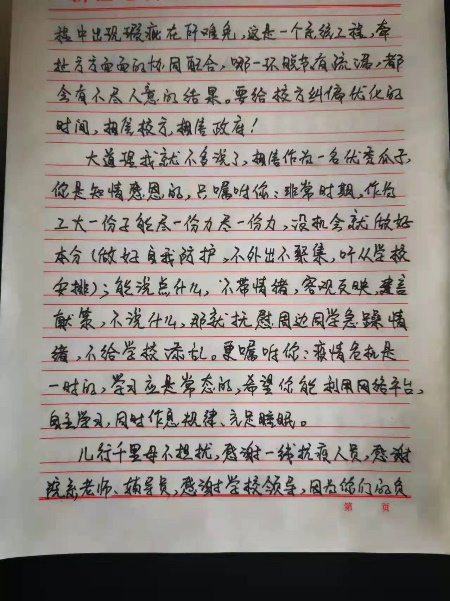 控中出现瑕疵在所难免，这是一个系统工程，牵
扯方方面面的协同配合，哪一环脱节有疏漏，都
会有不尽人意的结果。要给校方纠偏优化的
时间，相信校方，相信政府！
大道理我就不多说了，相信作为一名优秀瓜子，
你是知情感恩的，只嘱咐你：非常时期，作为
工大一份子能尽一份力尽一份力，没机会就做好
本分（做好自我防护，不外出不聚集，听从学校
安排）；能说点什么，不带情绪，客观反映，建言
献策，不说什么，那就抚慰周边同学急躁情
绪，不给学校添乱。更嘱咐你：疫情危机是
一时的，学习应是常态的，希望你能利用网络平台，
自主学习，同时作息规律、充足睡眠。
儿行千里母不担扰，感谢一线抗疫人员，感谢
院系老师、辅导员，感谢学校领导，因为你们的负
第 页